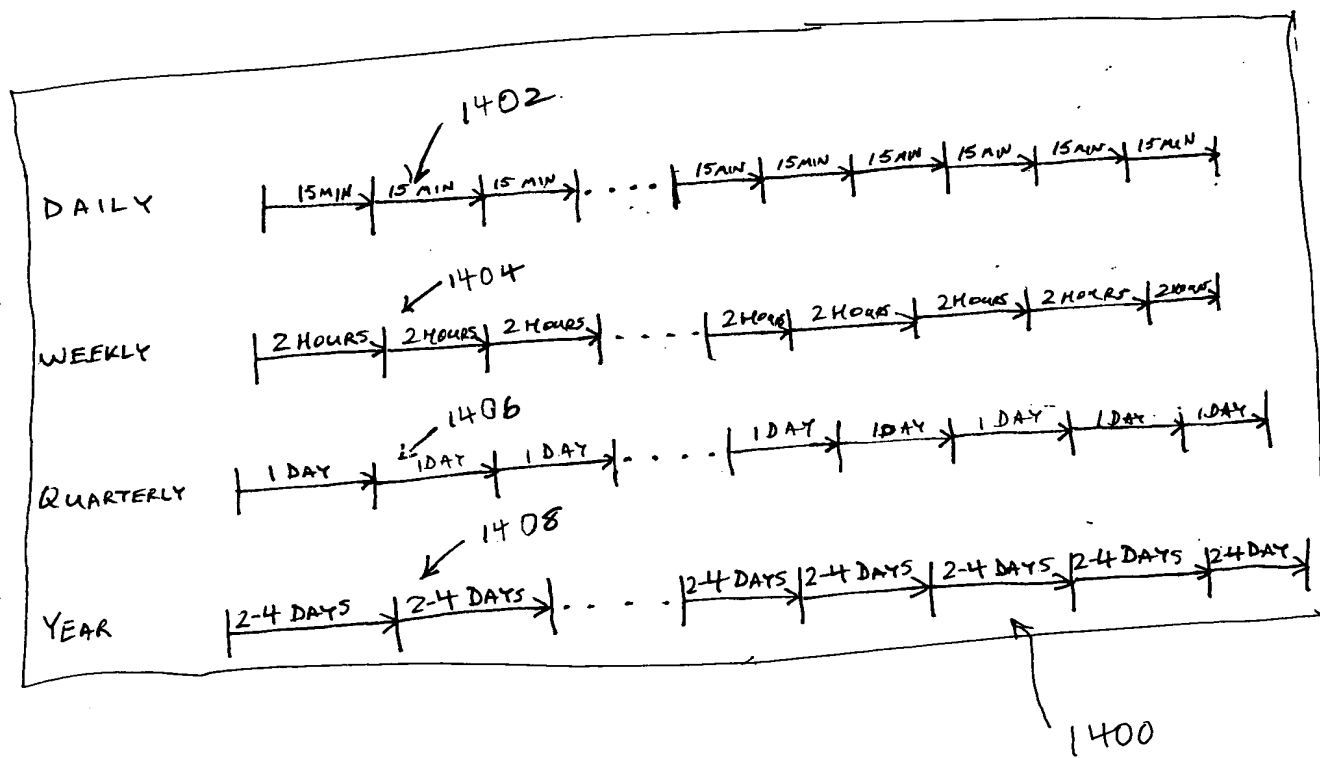 1402
DAILY 15 MIN 15 MIN 15 MIN 15 MIN 15 MIN 15 MIN 15 MIN 15 MIN 15 MIN
1404
WEEKLY 2 HOURS 2 HOURS 2 HOURS 2 HOURS 2 HOURS 2 HOURS 2 HOURS 2 HOURS
1406
QUARTERLY 1 DAY 1 DAY 1 DAY 1 DAY 1 DAY 1 DAY 1 DAY 1 DAY
1408
YEAR 2-4 DAYS 2-4 DAYS 2-4 DAYS 2-4 DAYS 2-4 DAYS 2-4 DAYS 2-4 DAY
1400